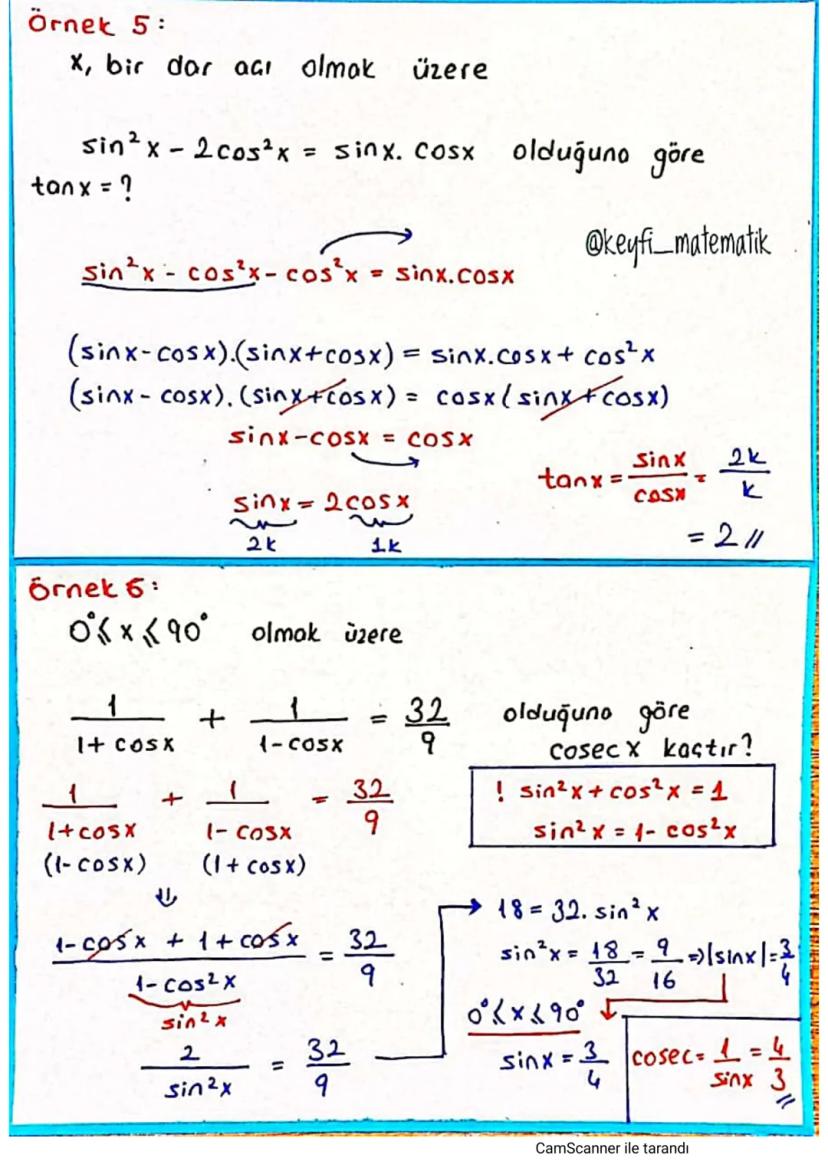 Örnek 5:
x, bir dar açı olmak üzere
sin²x - 2cos²x = sinx. cosx olduğuna göre
tanx = ?
@keyfi_matematik
sin²x - cos²x - cos²x = sinx.cosx
(sinx-cosx).(sinx+cosx) = sinx.cosx + cos²x
(sinx - cosx). (sinx+cosx) = cosx(sinx+cosx)
sinx-cosx = cosx
sinx = 2cosx
2k 1k
tanx = sinx/cosx = 2k/k
= 2 //
Örnek 6:
0°≤ x ≤ 90° olmak üzere
1/(1+ cosx) + 1/(1-cosx) = 32/9 olduğuna göre
cosec x kaçtır?
1/(1+cosx) + 1/(1- cosx) = 32/9
(1- cosx) (1+ cosx)
! sin²x + cos²x = 1
sin²x = 1- cos²x
⇓
(1-cosx + 1+ cosx)/(1-cos²x) = 32/9
sin²x
2/sin²x = 32/9
→ 18 = 32. sin²x
sin²x = 18/32 = 9/16 ⇒ |sinx| = 3/4
0°≤ x ≤ 90°
sinx = 3/4
cosec = 1/sinx = 4/3 //
CamScanner ile tarandı